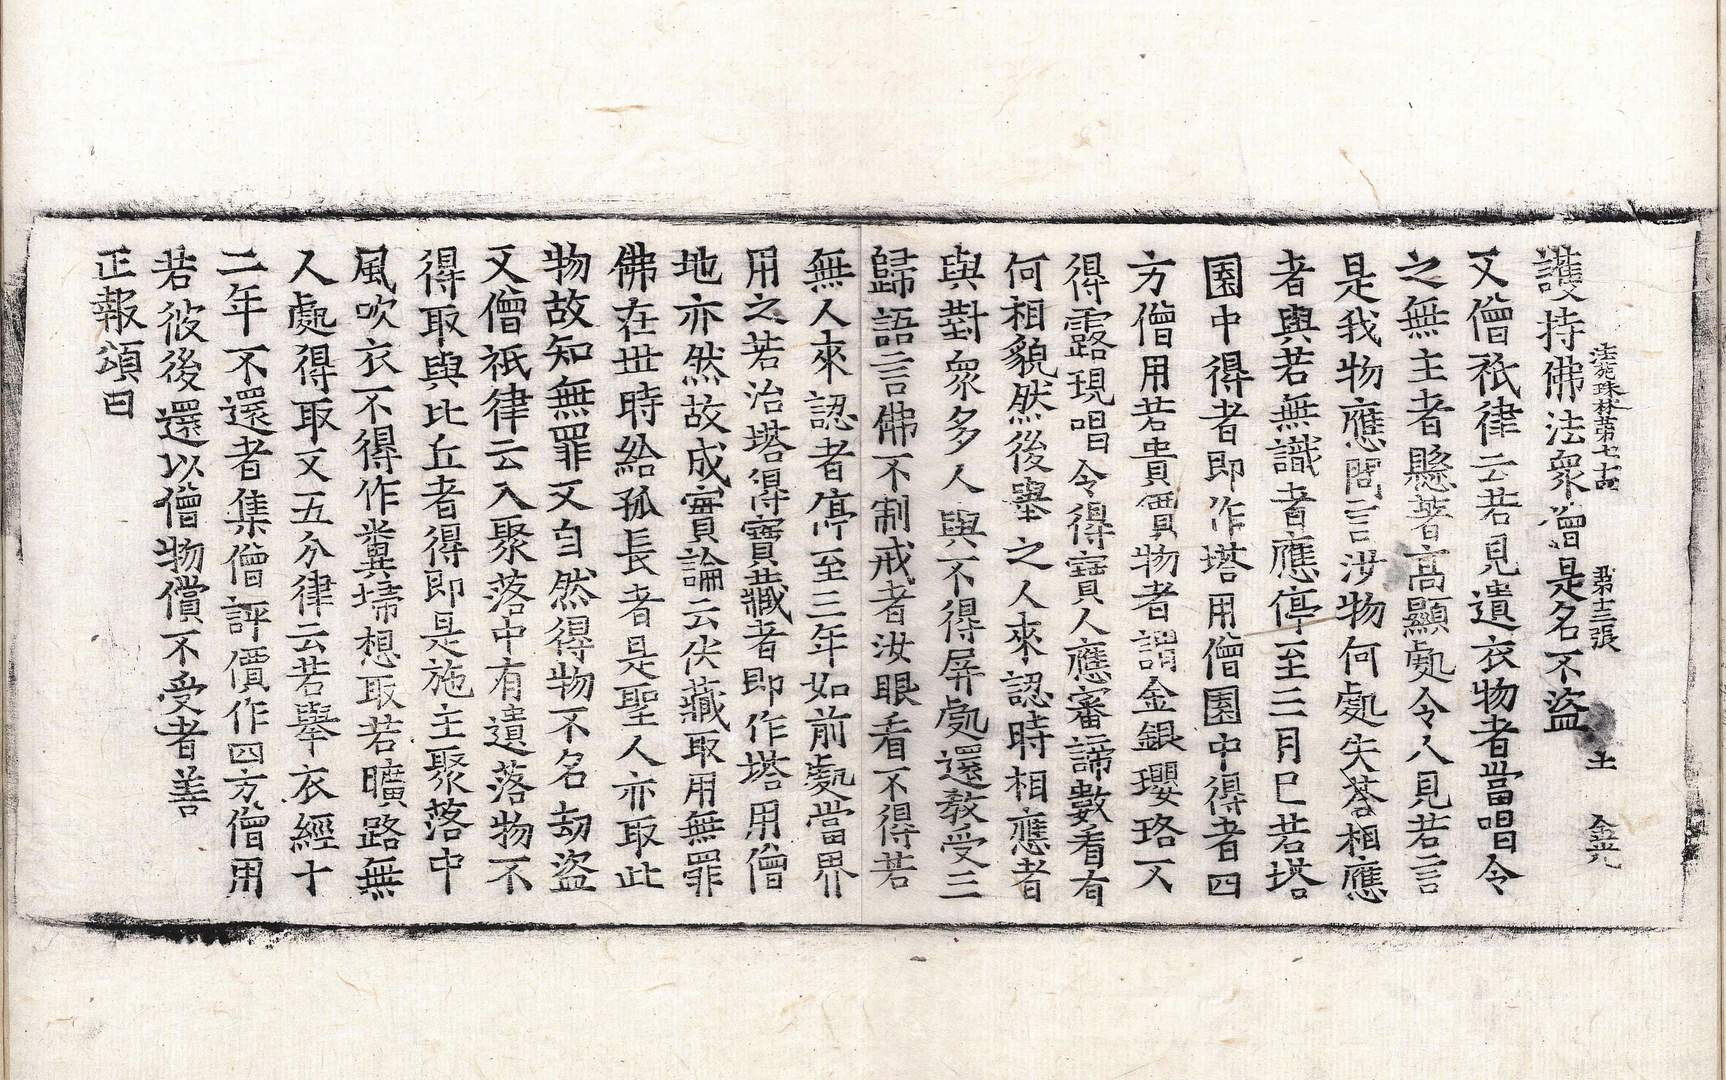 法苑珠林第七十四 第十三張 土 金元
護持佛法衆僧是名不盜
又僧祇律云若見遺衣物者當唱令
之無主者懸著高顯處令人見若言
是我物應問言汝物何處失荅相應
者與若無識者應停至三月巳若塔
園中得者即作塔用僧園中得者四
方僧用若貴價物者謂金銀瓔珞不
得露現唱令得寶人應審諦數看有
何相貌然後舉之人來認時相應者
與對衆多人與不得屏處還教受三
歸語言佛不制戒者汝眼看不得若
無人來認者停至三年如前處當界
用之若治塔得寶藏者即作塔用僧
地亦然故成實論云伏藏取用無罪
佛在世時給孤長者是聖人亦取此
物故知無罪又自然得物不名劫盜
又僧祇律云入聚落中有遺落物不
得取與比丘者得即是施主聚落中
風吹衣不得作糞掃想取若曠路無
人處得取又五分律云若舉衣經十
二年不還者集僧評價作四方僧用
若彼後還以僧物償不受者善
正報頌曰